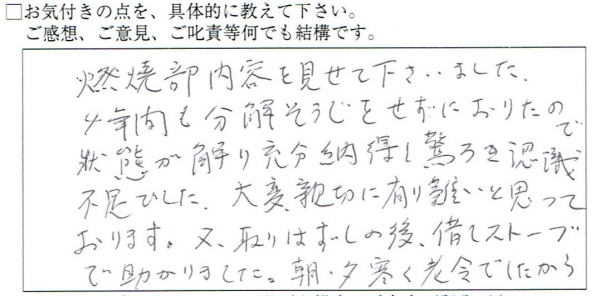 □お気付きの点を、具体的に教えて下さい。
ご感想、ご意見、ご叱責等何でも結構です。
燃焼部内容を見せて下さいました。
4年間も分解そうじをせずにおりたので
状態が解り充分納得し驚ろき認識
不足でした。大変親切に有り難いと思って
おります。又、取りはずしの後、借しストーブ
で助かりました。朝・夕寒く老令でしたから